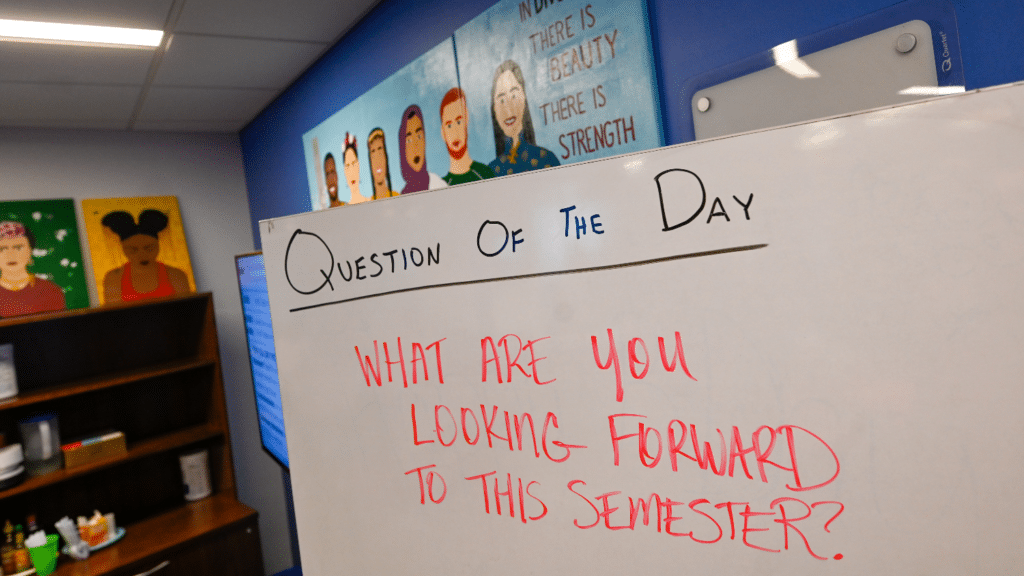 THERE IS
BEAUTY
THERE IS
STRENGTH
QUESTION OF THE DAY
WHAT ARE YOU
LOOKING FORWARD
TO THIS SEMESTER?